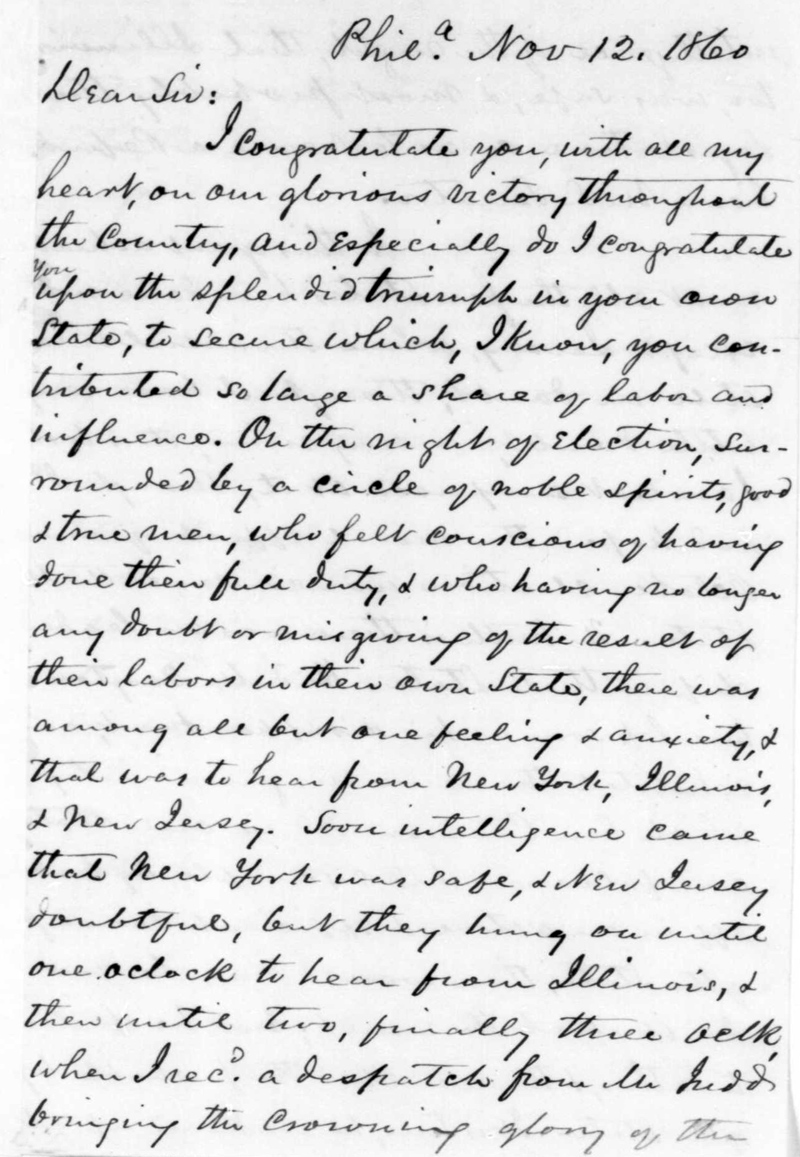 Phila. Nov 12. 1860
Dear Sir:
I congratulate you, with all my
heart, on our glorious victory throughout
the Country, and Especially do I congratulate
you
upon the splendid triumph in your own
State, to secure which, I Know, you con-
tributed so large a share of labor and
influence. On the night of Election, sur-
rounded by a circle of noble spirits, good
& true men, who felt conscious of having
done their full duty, & who having no longer
any doubt or misgiving of the result of
their labors in their own State, there was
among all but one feeling & anxiety, &
that was to hear from New York, Illinois,
& New Jersey. Soon intelligence came
that New York was safe, & New Jersey
doubtful, but they hung on until
one oclock to hear from Illinois, &
then until two, finally three oclk,
when I recd. a despatch from Mr Judd
bringing the crowning glory of the